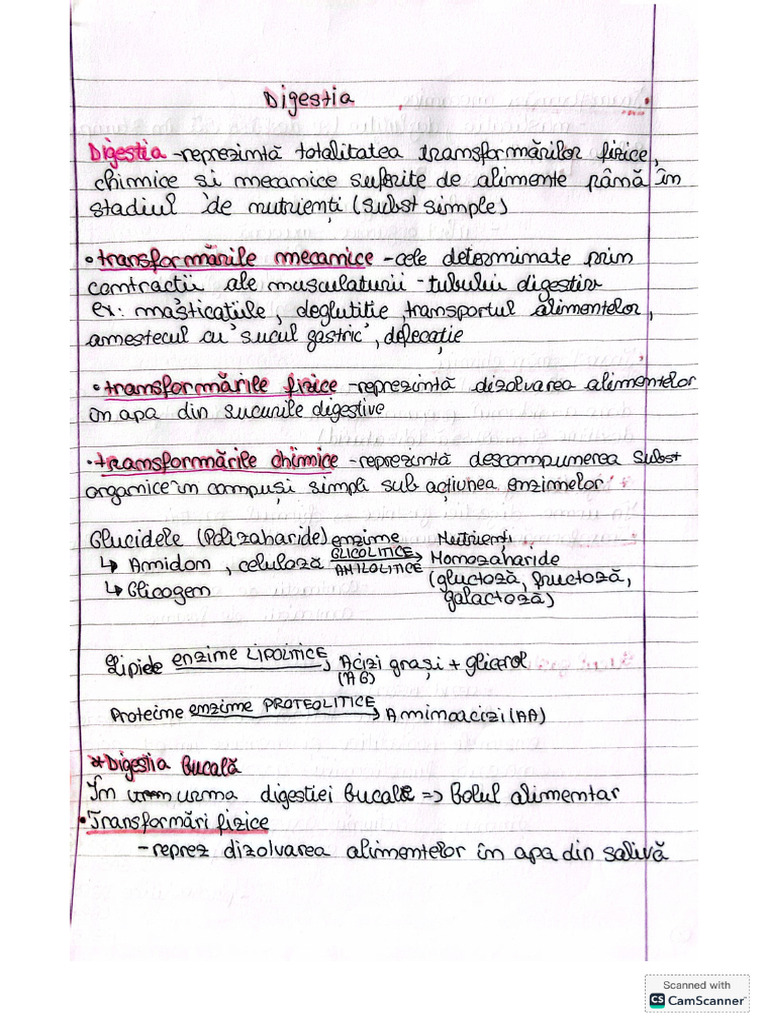 Digestia
Digestia - reprezintă totalitatea transformărilor fizice,
chimice si mecanice suferite de alimente până în
stadiul de nutrienți (subst simple)
• transformările mecanice - cele determinate prin
contractii ale musculaturii - tubului digestiv
ex: masticațiile, deglutitie, transportul alimentelor,
amestecul cu sucul gastric, defecație
• transformările fizice - reprezintă dizolvarea alimentelor
în apa din sucurile digestive
• transformările chimice - reprezintă descompunerea subst
organice in compuși simpli sub acțiunea enzimelor
Glucidele (Polizaharide) enzime Nutrienți
↳ Amidon, celuloză GLICOLITICE → Monozaharide
AMILOLITICE (gluctoză, fructoză,
↳ Glicogen galactoză)
Lipide enzime LIPOLITICE → Acizi grași + glicerol
(AG)
Proteine enzime PROTEOLITICE → Aminoacizi (AA)
* Digestia Bucală
În urma digestiei bucale => Bolul alimentar
• Transformări fizice
- reprez dizolvarea alimentelor în apa din salivă
Scanned with
CS CamScanner